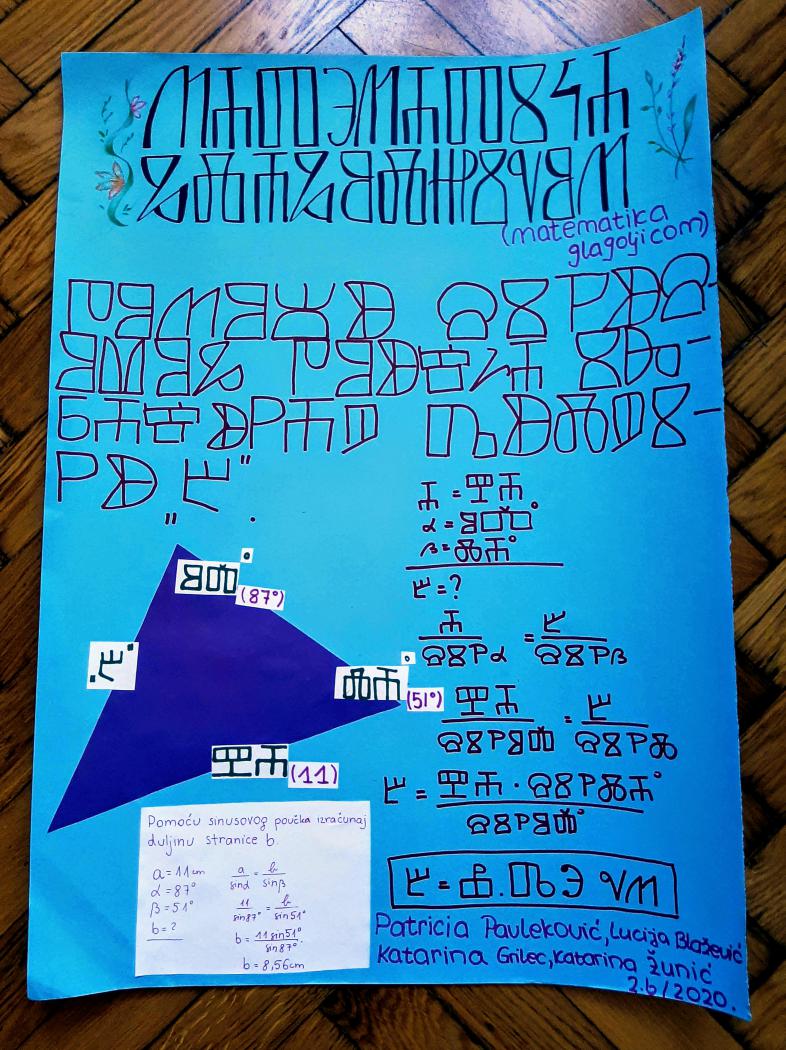 ⰿⰰⱅⰵⰿⰰⱅⰻⰽⰰ
ⰳⰾⰰⰳⱁⰾⰼⰻⱌⱁⰿ
(matematika
glagoljicom)
ⱂⱁⰿⱁⱋⱆ ⱄⰻⱀⱆⱄ-
ⱁⰲⱁⰳ ⱂⱁⱆⱍⰽⰰ ⰻⰸ-
ⱃⰰⱍⱆⱀⰰⰼ ⰴⱆⰾⰼⰻ-
ⱀⱆ „ⰱ".
ⰰ = ⰺⰰ
α = ⱁⰶ°
β = ⰾⰰ°
ⰱ = ?
ⰰ = ⰱ
ⱄⰻⱀα ⱄⰻⱀβ
ⰺⰰ = ⰱ
ⱄⰻⱀⱁⰶ ⱄⰻⱀⰾ
ⰱ = ⰺⰰ · ⱄⰻⱀⰾⰰ°
ⱄⰻⱀⱁⰶ°
ⱁⰶ°
(87°)
ⰱ
ⰾⰰ°
(51°)
ⰺⰰ
(11)
Pomoću sinusovog poučka izračunaj
duljinu stranice b.
a = 11 cm
α = 87°
β = 51°
b = ?
a = b
sinα sinβ
11 = b
sin87° sin51°
b = 11 sin51°
sin87°
b = 8,56cm
Patricia Pavleković, Lucija Blažević
Katarina Grilec, Katarina Žunić
2.b/2020.